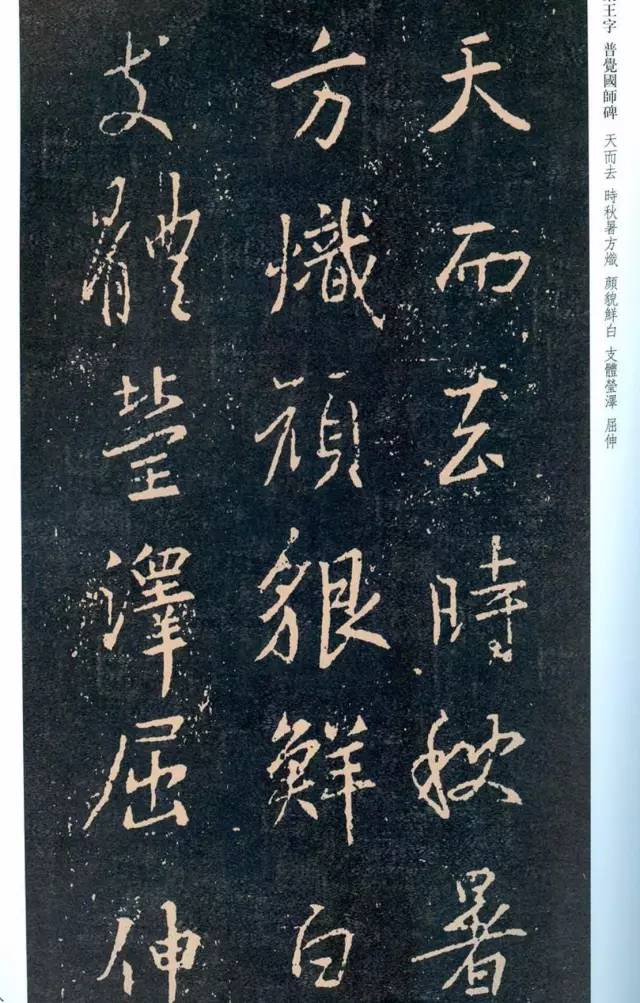 王字 普覺國師碑 天而去 時秋暑方熾 顏貌鮮白 支體瑩澤 屈伸
天而去時秋暑
方熾顏貌鮮白
支體瑩澤屈伸